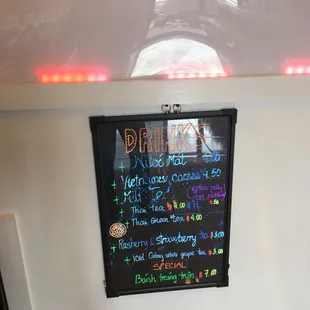 DRINKS
Nước Mát
+ Vietnamese coffee 4.50
+ Milk
+ Thai tea $4.00
+ Thai Green tea $4.00
+ Rasberry & strawberry tea $3.00
+ Iced white grape tea $3.00
SPECIAL
Bánh tráng trộn $7.00